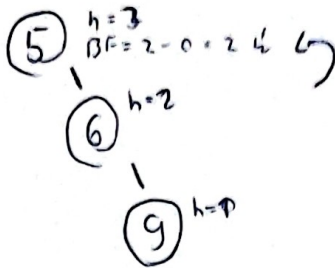 5 h=3
BF=2-0=2
6 h=2
9 h=1